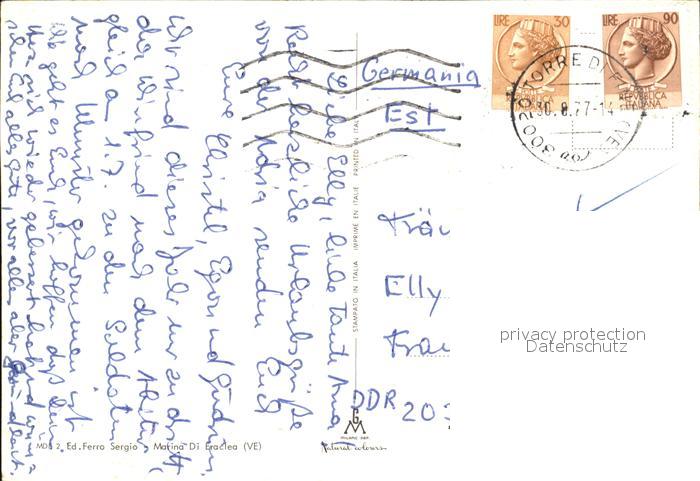 LIRE 30
LIRE 90
REPUBBLICA ITALIANA
30020 TORRE DI (VE)
30.8.77-14
Germania
Est
Elly
DDR 20
privacy protection
Datenschutz
Liebe Elly, liebe Tante Anna
Recht herzliche Urlaubsgrüße
von der Adria senden Euch
Eure Christel, Egon und Gudrun.
Wir sind dieses Jahr nur zu dritt,
da Winfried nach dem Abitur
gleich am 1.7. zu den Soldaten
nach Münster gekommen ist.
Wie geht es Euch, wir hoffen daß
sich wieder gebessert hat und
Euch alles Gute, vor allem aber Gesundheit.
STAMPATO IN ITALIA IMPRIMÉ EN ITALIE PRINTED IN ITALY
MDE 2 Ed. Ferro Sergio - Marina Di Eraclea (VE)
GM
MILANO
Natural colours